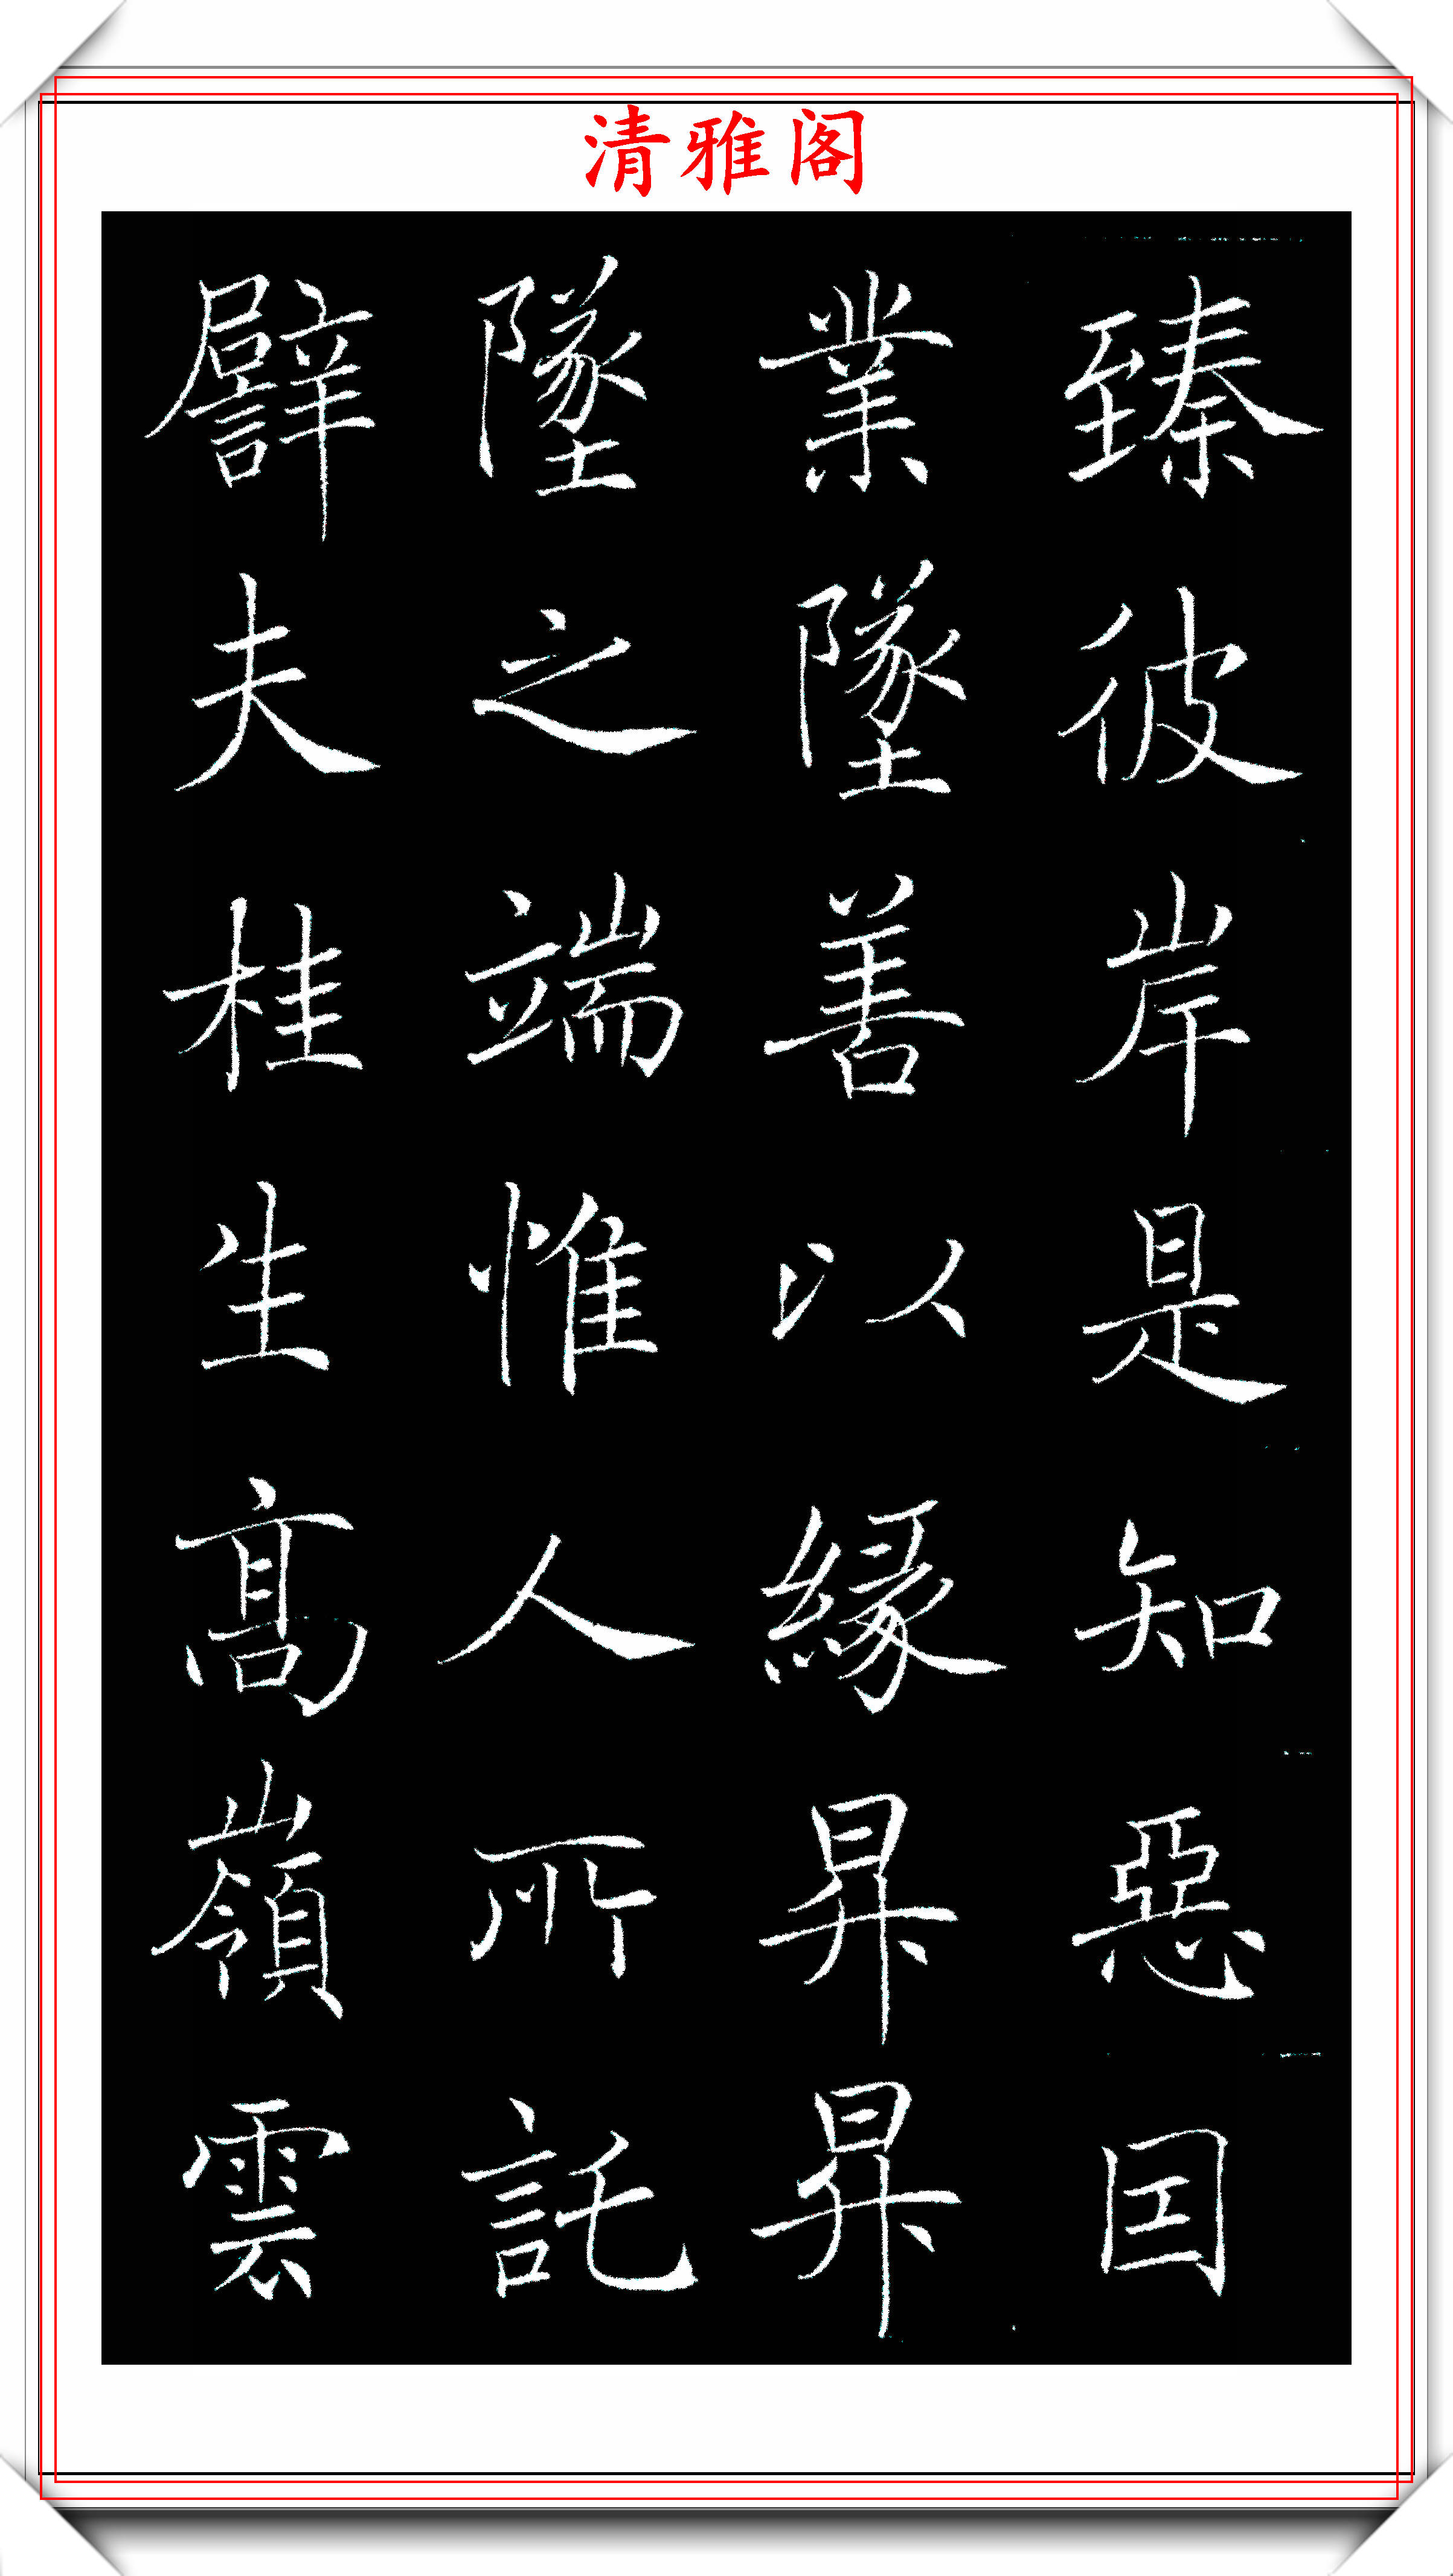 清雅阁
臻彼岸是知惡囙
業墜善以緣昇昇
墜之端惟人所託
譬夫桂生髙嶺雲